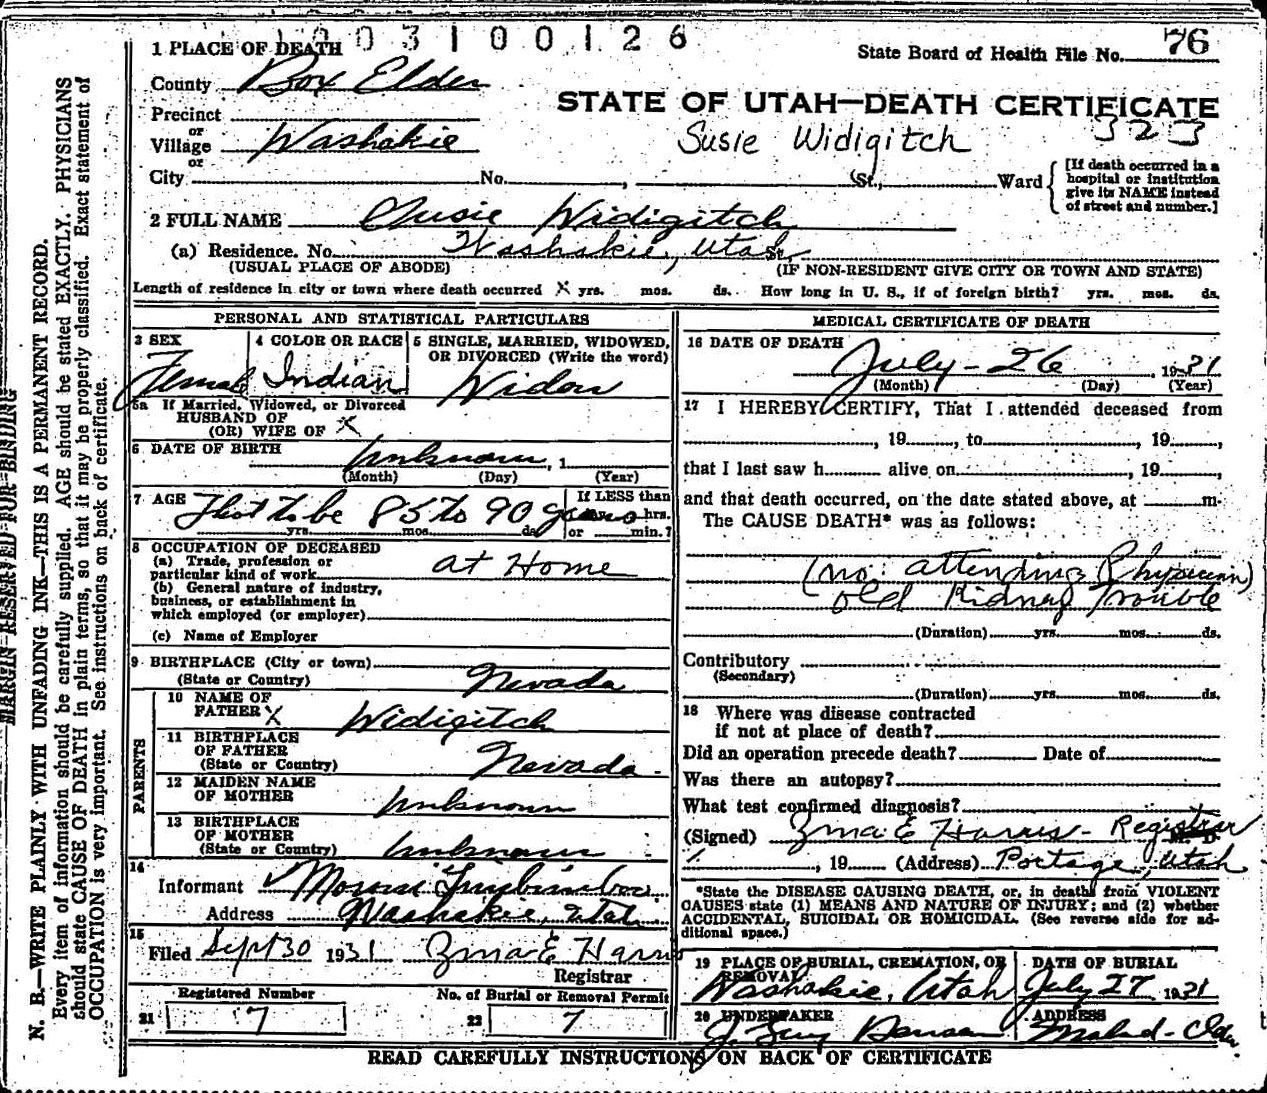 1003100126
1 PLACE OF DEATH
State Board of Health File No. 76
County Box Elder
STATE OF UTAH—DEATH CERTIFICATE
323
Precinct
or
Village Washakie
Susie Widigitch
or
City No. , St., Ward
[If death occurred in a
hospital or institution
give its NAME instead
of street and number.]
2 FULL NAME Susie Widigitch
(a) Residence. No. Washakie, Utah St.,
(USUAL PLACE OF ABODE) (IF NON-RESIDENT GIVE CITY OR TOWN AND STATE)
Length of residence in city or town where death occurred X yrs. mos. ds. How long in U. S., if of foreign birth? yrs. mos. ds.
PERSONAL AND STATISTICAL PARTICULARS
3 SEX
Female
4 COLOR OR RACE
Indian
5 SINGLE, MARRIED, WIDOWED,
OR DIVORCED (Write the word)
Widow
5a If Married, Widowed, or Divorced
HUSBAND OF
(OR) WIFE OF X
6 DATE OF BIRTH Unknown, 1
(Month) (Day) (Year)
7 AGE Thot to be 85 to 90 years
If LESS than
hrs.
yrs. mos. ds. or min.?
8 OCCUPATION OF DECEASED
(a) Trade, profession or
particular kind of work at Home
(b) General nature of industry,
business, or establishment in
which employed (or employer)
(c) Name of Employer
9 BIRTHPLACE (City or town)
(State or Country) Nevada
PARENTS
10 NAME OF
FATHER X Widigitch
11 BIRTHPLACE
OF FATHER
(State or Country) Nevada
12 MAIDEN NAME
OF MOTHER Unknown
13 BIRTHPLACE
OF MOTHER
(State or Country) Unknown
14
Informant
Address Washakie, Utah
15
Filed Sept 30 1931 Zma E Harris
Registrar
Registered Number
21 7
No. of Burial or Removal Permit
22 7
MEDICAL CERTIFICATE OF DEATH
16 DATE OF DEATH
July - 26, 1931
(Month) (Day) (Year)
17 I HEREBY CERTIFY, That I attended deceased from
, 19 , to , 19 ,
that I last saw h alive on , 19 ,
and that death occurred, on the date stated above, at m.
The CAUSE DEATH* was as follows:
(no attending Physician)
old Kidney Trouble
(Duration) yrs. mos. ds.
Contributory
(Secondary)
(Duration) yrs. mos. ds.
18 Where was disease contracted
if not at place of death?
Did an operation precede death? Date of
Was there an autopsy?
What test confirmed diagnosis?
(Signed) Zma E Harris - Registrar M. D
, 19 (Address) Portage, Utah
*State the DISEASE CAUSING DEATH, or, in deaths from VIOLENT
CAUSES state (1) MEANS AND NATURE OF INJURY; and (2) whether
ACCIDENTAL, SUICIDAL OR HOMICIDAL. (See reverse side for ad-
ditional space.)
19 PLACE OF BURIAL, CREMATION, OR
REMOVAL
Washakie, Utah
DATE OF BURIAL
July 27 1931
20 UNDERTAKER
ADDRESS
Malad - Ida
READ CAREFULLY INSTRUCTIONS ON BACK OF CERTIFICATE
MARGIN RESERVED FOR BINDING
N. B.—WRITE PLAINLY WITH UNFADING INK—THIS IS A PERMANENT RECORD.
Every item of information should be carefully supplied. AGE should be stated EXACTLY. PHYSICIANS
should state CAUSE OF DEATH in plain terms, so that it may be properly classified. Exact statement of
OCCUPATION is very important. See instructions on back of certificate.